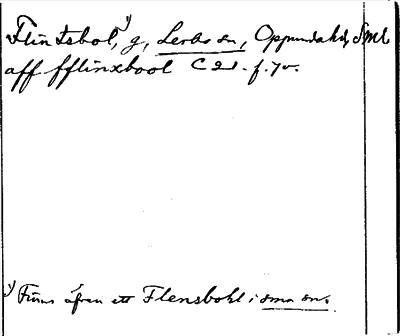 Flintsbol,¹⁾ g, Lerbo sn, Oppunda hd, Sml
aff fflinxbool C 21 . f. 7v.
¹⁾ Finns äfven ett Flensbohl i sma sn.